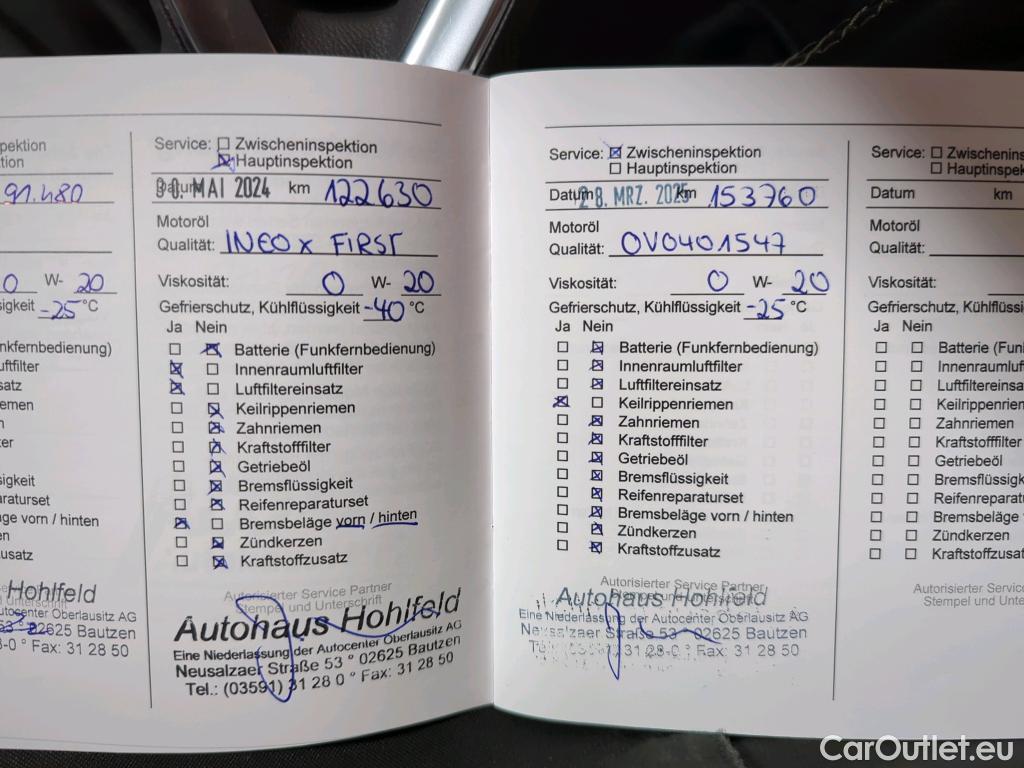 nspektion
tion
91.480
0 W- 20
sigkeit -25 °C
nkfernbedienung)
uftfilter
satz
iemen
n
ter
sigkeit
araturset
läge vorn / hinten
en
usatz
Hohlfeld
utocenter Oberlausitz AG
02625 Bautzen
8-0 ° Fax: 31 28 50
Service: ☐ Zwischeninspektion
☒ Hauptinspektion
Datum 30. MAI 2024 km 122630
Motoröl
Qualität: INEO X FIRST
Viskosität: 0 W- 20
Gefrierschutz, Kühlflüssigkeit -40 °C
Ja Nein
☐ ☒ Batterie (Funkfernbedienung)
☒ ☐ Innenraumluftfilter
☒ ☐ Luftfiltereinsatz
☐ ☒ Keilrippenriemen
☐ ☒ Zahnriemen
☐ ☒ Kraftstofffilter
☐ ☒ Getriebeöl
☐ ☒ Bremsflüssigkeit
☐ ☒ Reifenreparaturset
☒ ☐ Bremsbeläge vorn / hinten
☐ ☒ Zündkerzen
☐ ☒ Kraftstoffzusatz
Autorisierter Service Partner
Stempel und Unterschrift
Autohaus Hohlfeld
Eine Niederlassung der Autocenter Oberlausitz AG
Neusalzaer Straße 53 ° 02625 Bautzen
Tel.: (03591) 31 28 0 ° Fax: 31 28 50
Service: ☒ Zwischeninspektion
☐ Hauptinspektion
Datum 28. MRZ. 2025 km 153760
Motoröl
Qualität: OVO401547
Viskosität: 0 W- 20
Gefrierschutz, Kühlflüssigkeit -25 °C
Ja Nein
☐ ☒ Batterie (Funkfernbedienung)
☐ ☒ Innenraumluftfilter
☐ ☒ Luftfiltereinsatz
☒ ☐ Keilrippenriemen
☐ ☒ Zahnriemen
☐ ☒ Kraftstofffilter
☐ ☒ Getriebeöl
☐ ☒ Bremsflüssigkeit
☐ ☒ Reifenreparaturset
☐ ☒ Bremsbeläge vorn / hinten
☐ ☒ Zündkerzen
☐ ☒ Kraftstoffzusatz
Autorisierter Service Partner
Stempel und Unterschrift
Autohaus Hohlfeld
Eine Niederlassung der Autocenter Oberlausitz AG
Neusalzaer Straße 53 ° 02625 Bautzen
Tel.: (03591) 31 28-0 ° Fax: 31 28 50
Service: ☐ Zwischenins
☐ Hauptinspek
Datum km
Motoröl
Qualität:
Viskosität:
Gefrierschutz, Kühlflüssigk
Ja Nein
☐ ☐ Batterie (Funk
☐ ☐ Innenraumluft
☐ ☐ Luftfiltereinsa
☐ ☐ Keilrippenriem
☐ ☐ Zahnriemen
☐ ☐ Kraftstofffilter
☐ ☐ Getriebeöl
☐ ☐ Bremsflüssig
☐ ☐ Reifenreparat
☐ ☐ Bremsbeläge
☐ ☐ Zündkerzen
☐ ☐ Kraftstoffzusat
Autorisierter Service
Stempel und Unt
CarOutlet.eu